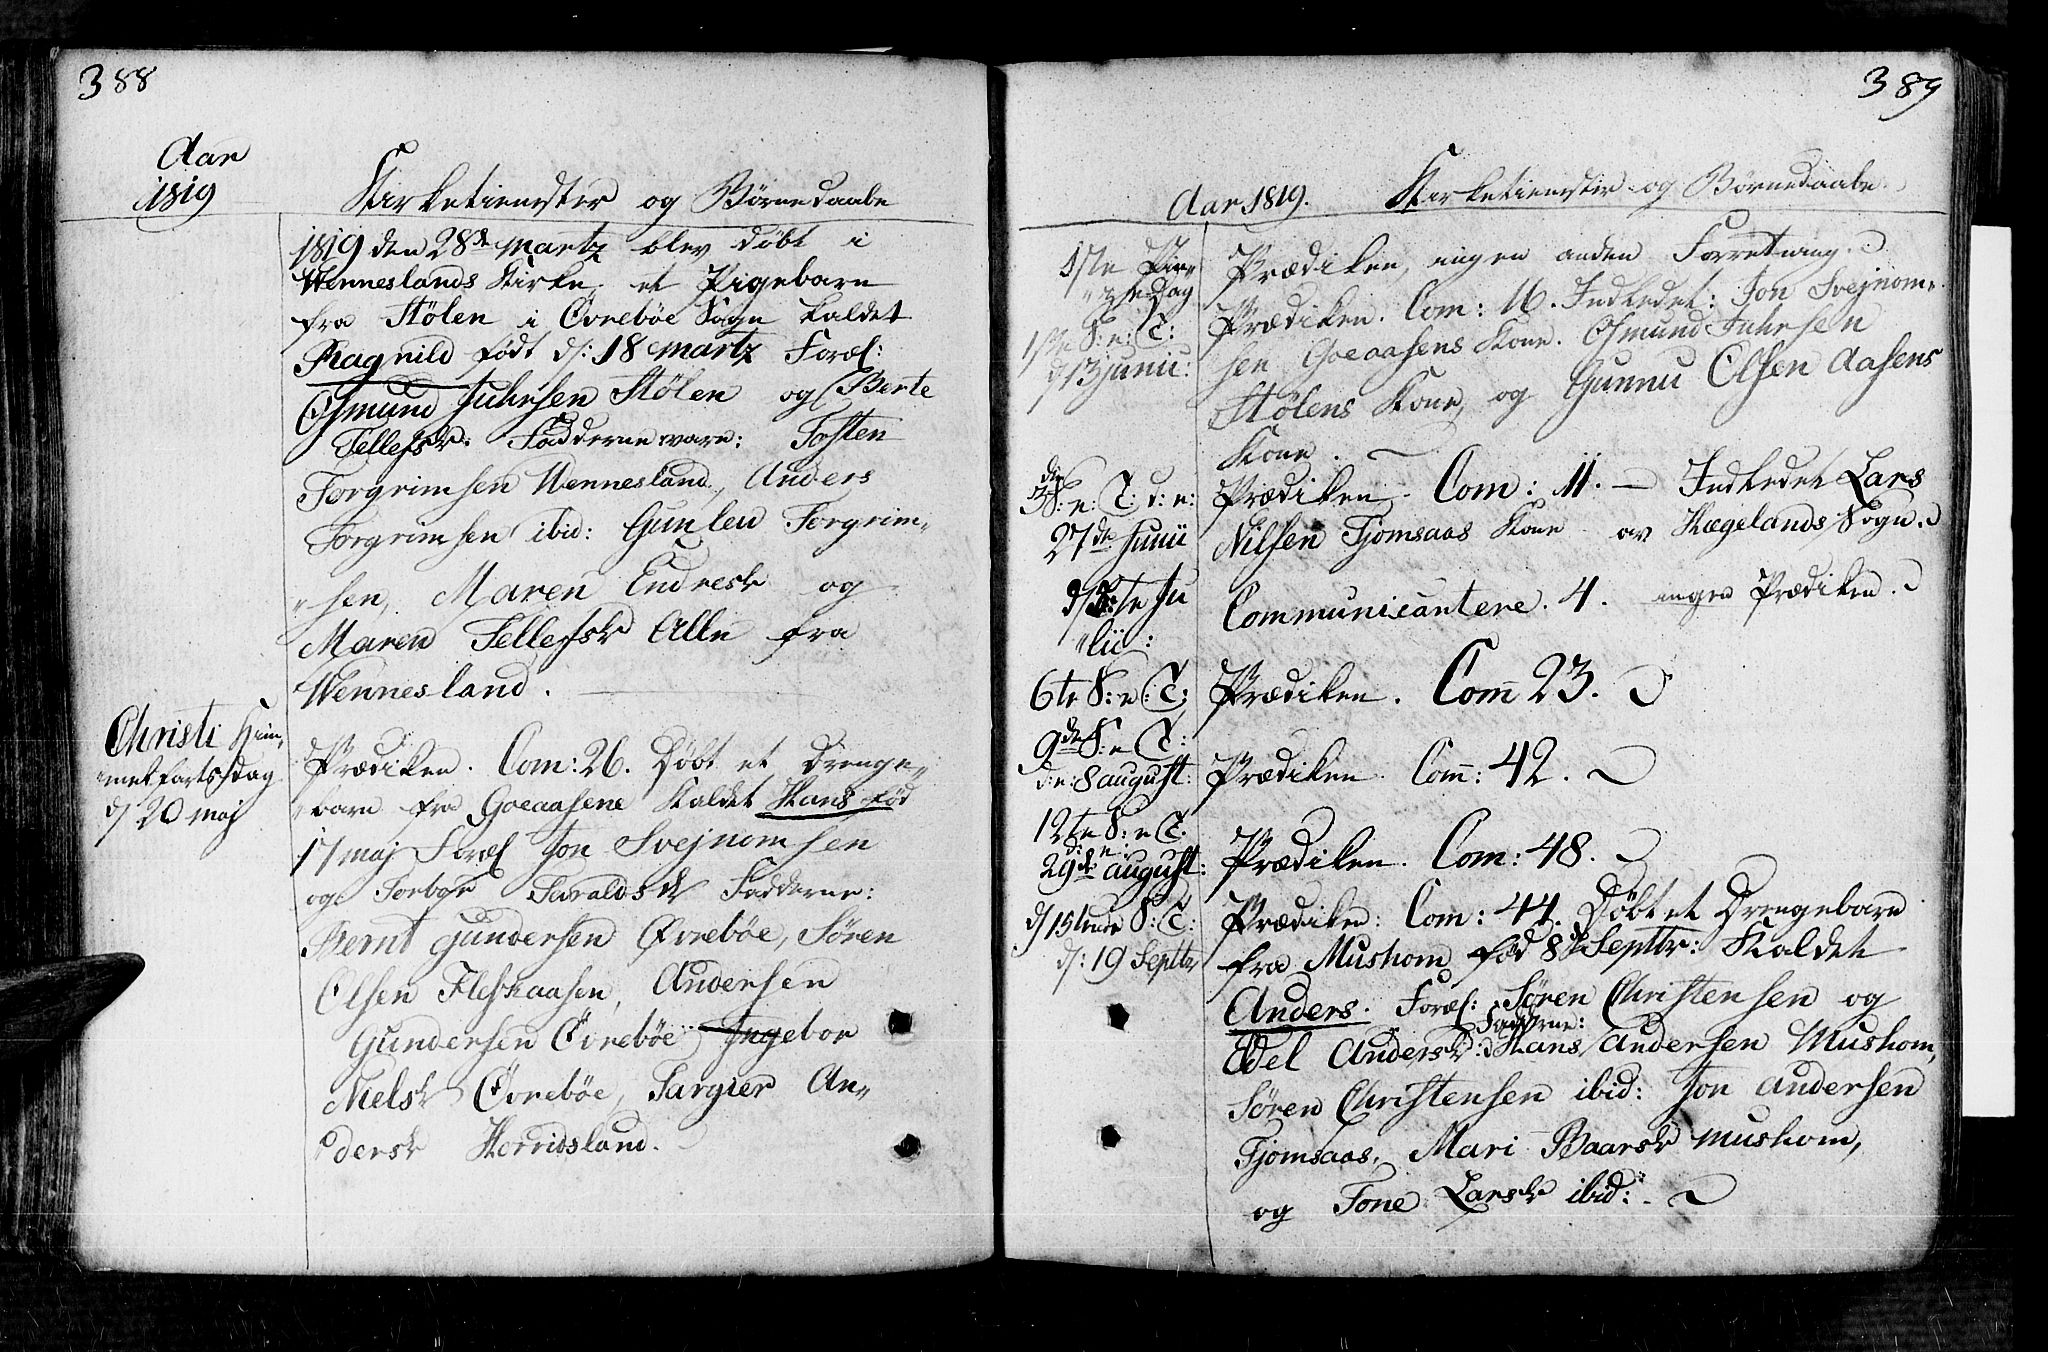 388
Aar
1819
Kirketienester og Børnedaabe
1819 den 28de Martz blev døbt i
Wenneslands Kirke et Pigebarn
fra Stølen i Øvrebøe Sogn kaldet
Ragnild født d: 18 Martz Foræl:
Osmund Juhrsen Stølen og Berte
Tellefsk: Fadderne vare: Tosten
Torgrimsen Wennesland, Anders
Torgrimsen ibid: Gunleu Torgrim„
„sen, Maren Endresk og
Maren Tellefsk Alle fra
Wennesland.
Christi Him„
„melfartsdag
d/ 20 maj
Prædiken. Com: 26. Døbt et Drenge„
„barn fra Goeaasene kaldet Hans fød
17 maj Foræl Jon Svejnomsen
og Torbor Taraldsk Fadderne:
Bernt Gundersen Øvrebøe, Søren
Olsen Fleskaasen, Andersen
Gundersen Øvrebøe Ingebor
Nielsk Øvrebøe, Sargier An„
„dersk Horridsland.
389
Aar 1819. Kirketienester og Børnedaabe
1ste Pin„
„ztedag
Prædiken, ingen anden Forretning.
1ste S: e: T:
d 13 junii:
Prædiken. Com: 16. Indledet: Jon Svejnom„
sen Goeaasens Kone. Osmund Juhrsen
Stølens Kone, og Gunnu Olsen Aasens
Kone.
S: e: T: d: e:
27de Junii
Prædiken. Com: 11. Indledet Lars
Nilsen Tjomsaas Kone av Hægelands Sogn.
Ju
„lii:
Communicantere. 4. ingen Prædiken.
6te S: e: T:
Prædiken. Com 23.
9de S: e T:
d: e: 8 august:
Prædiken. Com: 42.
12te S: e T.
d: e:
29de august:
Prædiken. Com: 48.
d/ 15tende S: T:
d: 19 Septtr
Prædiken: Com: 44. Døbt et Drengebarn
fra Mushom fød 8de Septtr: Kaldet
Anders. Foræl: Søren Christensen og
Fadderne:
Edel Andersk: Hans Andersen Mushom,
Søren Christensen ibid: Jon Andersen
Tjomsaas, Mari Baarsk Mushom,
og Tone Larsk ibid: